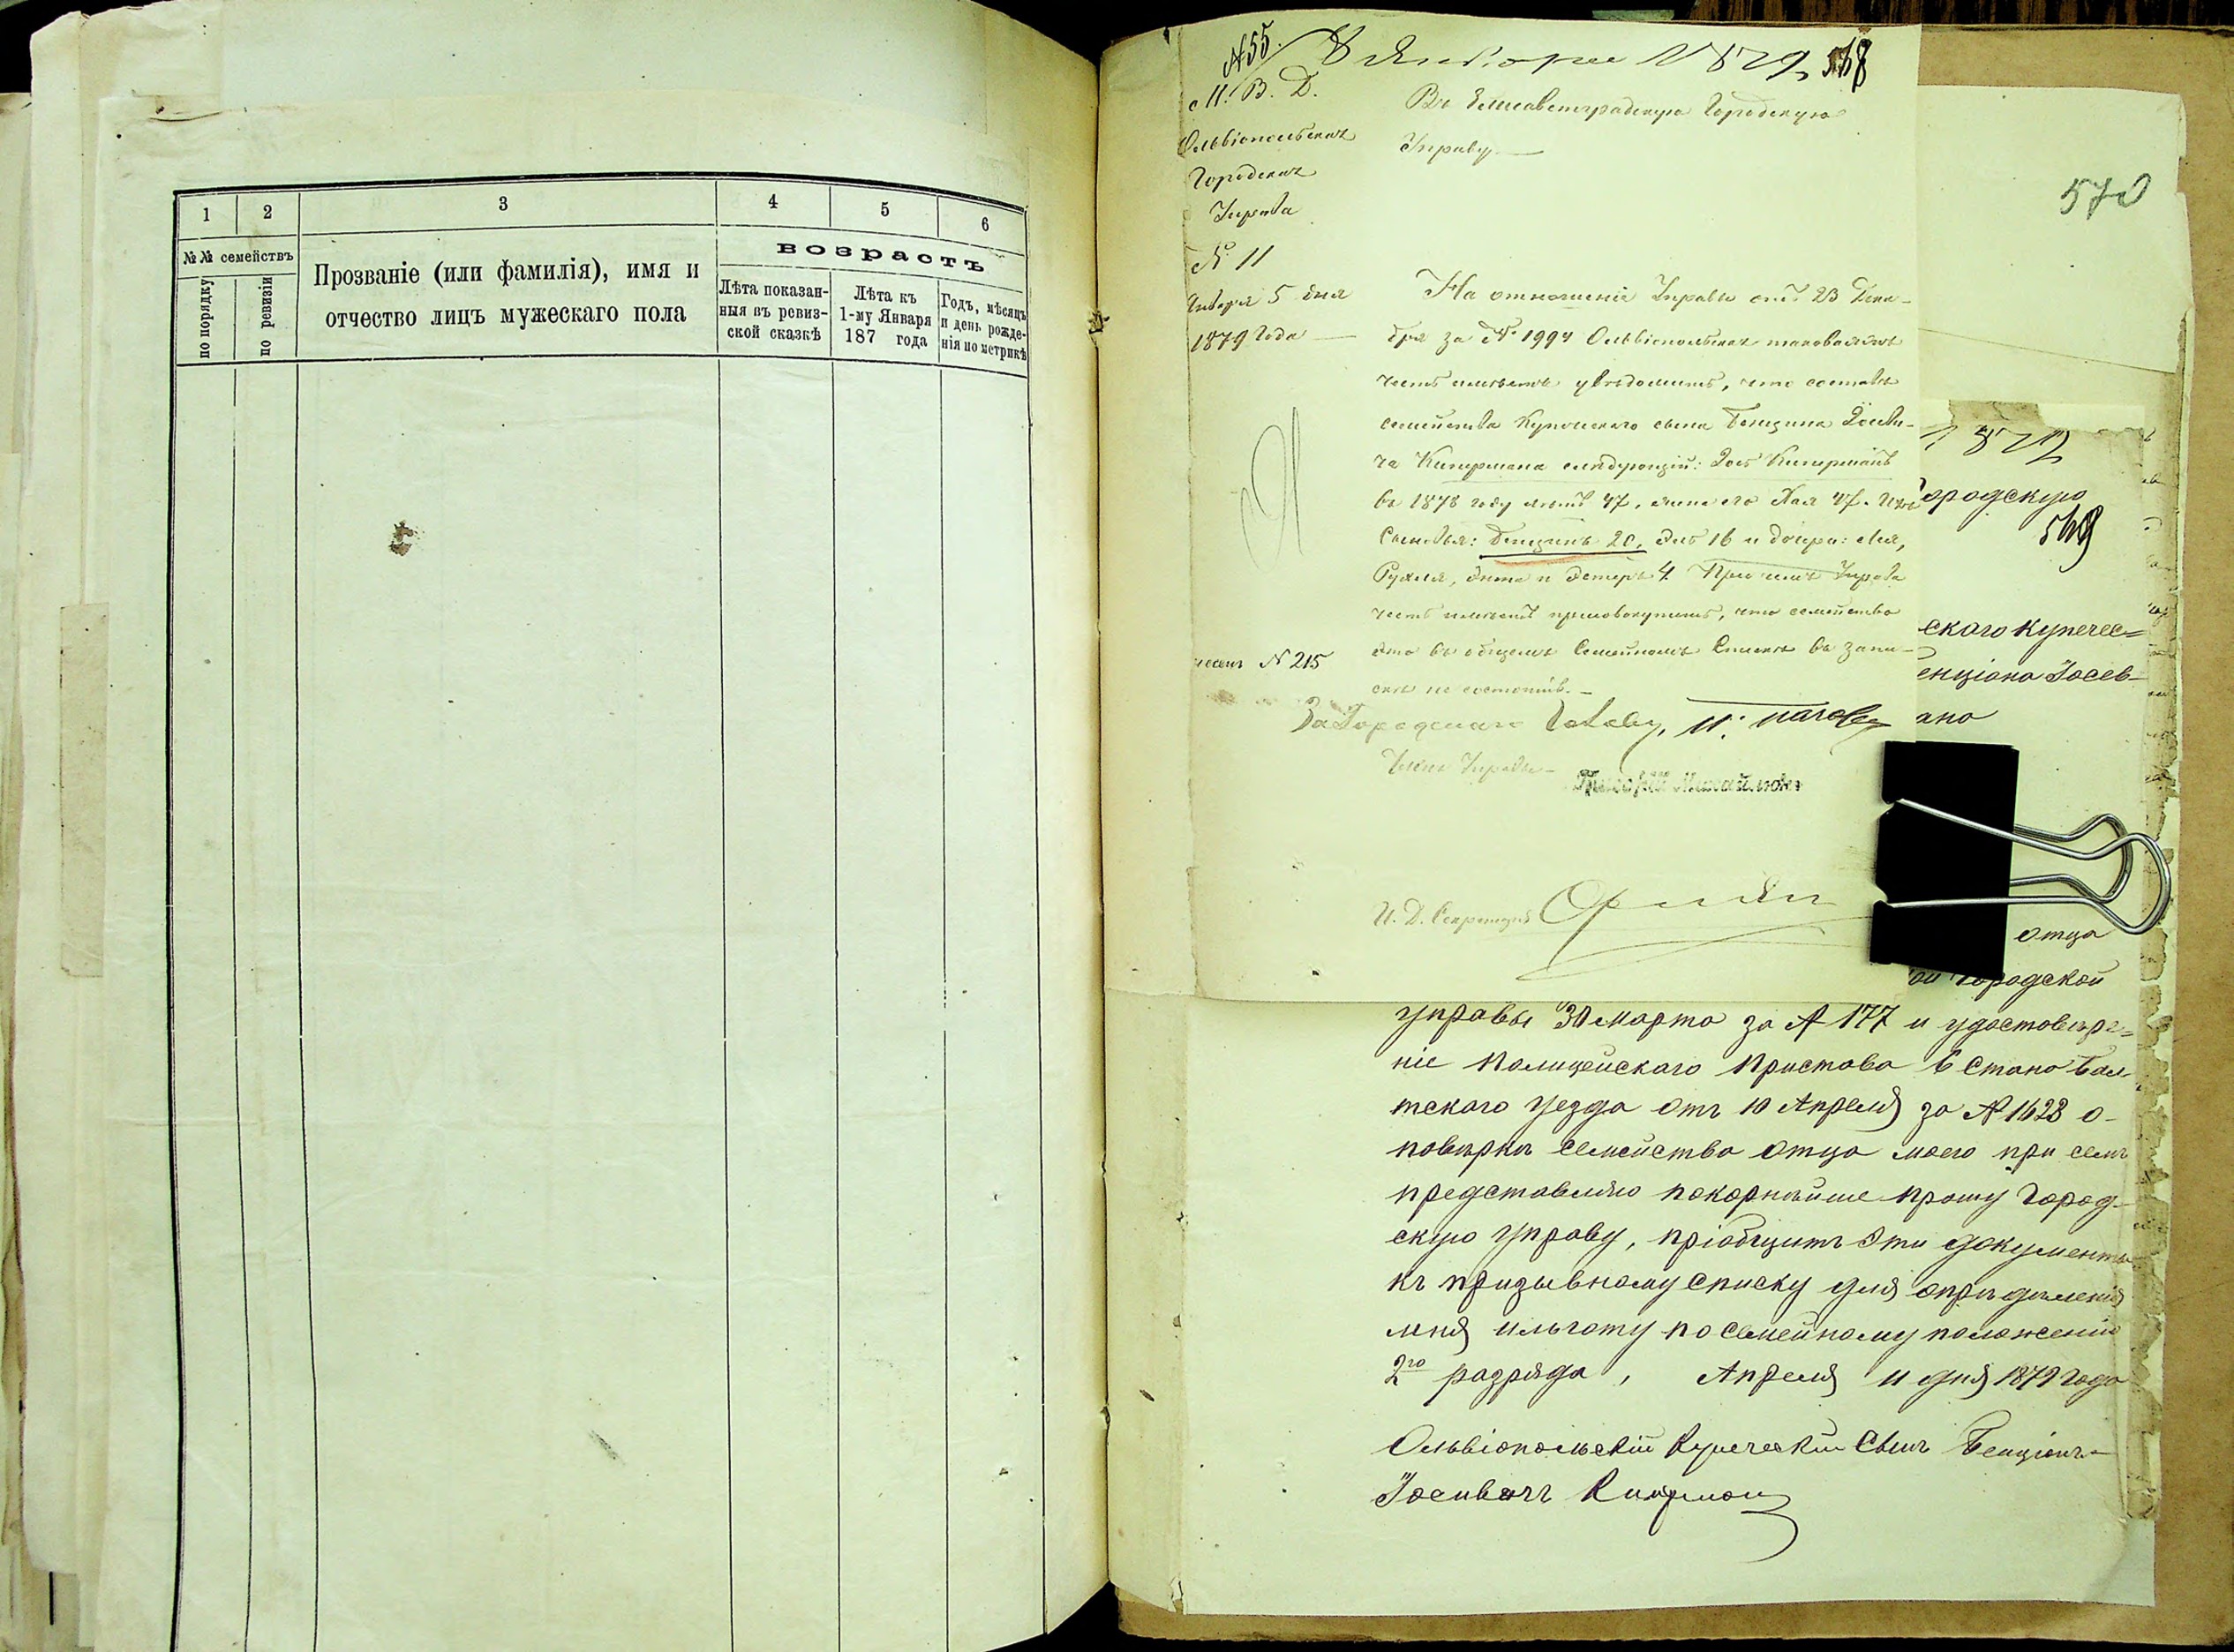 1
2
3
4
5
6
№№ семействъ
по порядку
по ревизіи
Прозваніе (или фамилія), имя и
отчество лицъ мужескаго пола
возрастъ
Лѣта показан-
ныя въ ревиз-
ской сказкѣ
Лѣта къ
1-му Января
187 года
Годъ, мѣсяцъ
и день рожде-
нія по метрикѣ
№ 55
8 Января 1879
568
М. В. Д.
Ольвіопольская
Городская
Управа
№ 11
Января 5 дня
1879 года
Въ Елисаветградскую Городскую
Управу
На отношеніе Управы отъ 23 Дека-
бря за № 1994 Ольвіопольская таковая
честь имѣетъ увѣдомить, что составъ
семейства Купеческаго сына Бенціона
Кипермана слѣдующій: Киперманъ
въ 1878 году лѣтъ 47, жена его Хая 47
Сыновья: Бенціонъ 20, 16 и дочери: Лея,
Рухля, и Эстеръ 4. При чемъ Управа
честь имѣетъ присовокупить, что семейство
это въ общемъ Семейномъ Спискѣ въ запи-
ски не состоитъ.
№ 215
За Городскаго Голову,
Членъ Управы
И. Д. Секретаря
570
1879
ородскую
569
скаго купечес=
енціона Іосев-
ано
отца
ой Городской
управы 30 Марта за № 177 и удостовѣре=
ніе Полицейскаго Пристава 6 Стана Бал-
тскаго уезда отъ 10 Апреля за № 1628 о-
повѣрки семейства отца моего при семъ
представляю покорнѣйше прошу Город-
скую управу, пріобщить эти документы
къ призывному списку для опредѣленія
мня ильготу по семейному положенію
2го разряда, Апреля 11 дня 1879 года
Ольвіопольскій Купеческій Сынъ Бенціонъ-
Іосивачъ Киперман